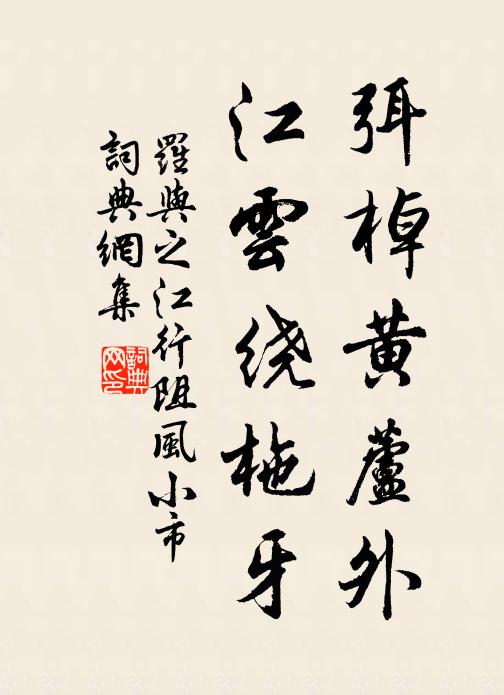 弭棹黄蘆外
江雲绕柂牙
羅與之江行阻風小市
詞典網集
詞典网印